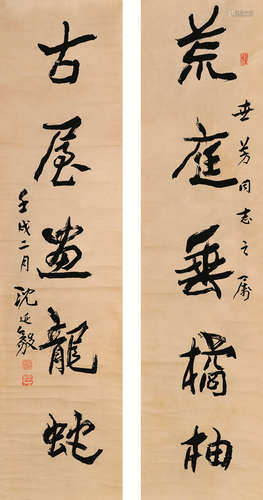 荒庭垂橘柚
世芳同志之属
古屋画龍蛇
壬戌二月 沈延毅